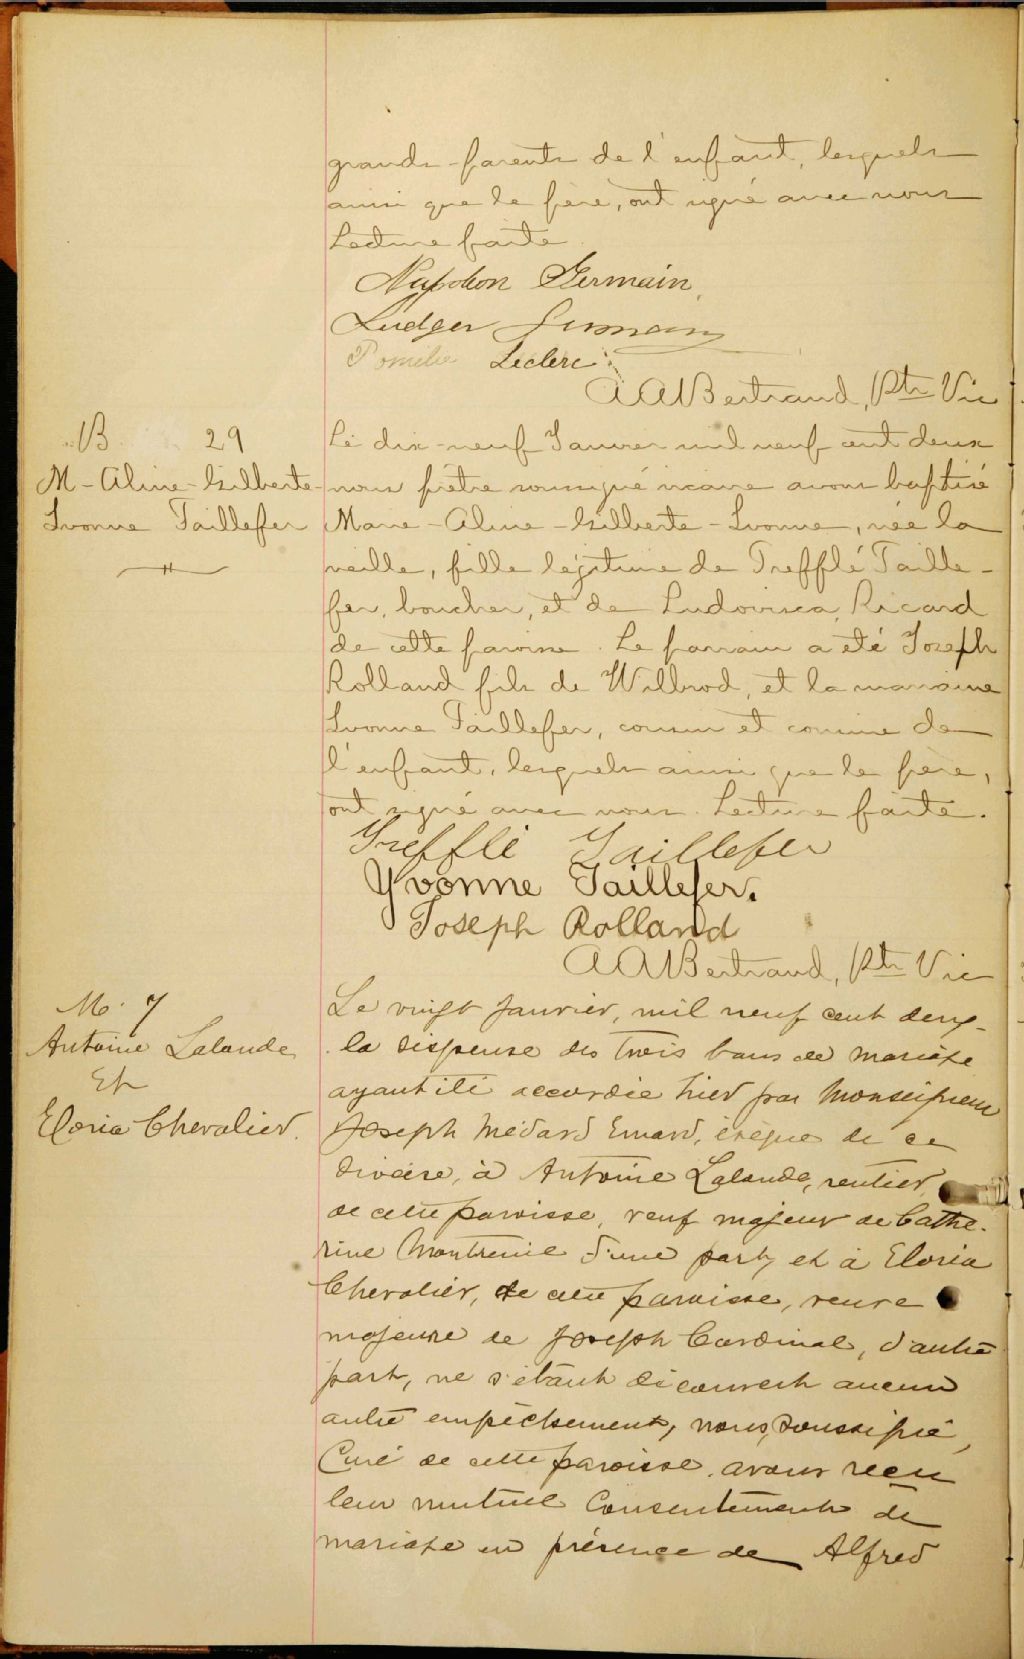 grands-parents de l'enfant, lesquels
ainsi que le père, ont signé avec nous
Lecture faite
Napoléon Germain
Ludger Germain
Pomela Leclerc
A A Bertrand, Ptre Vic
B 29
M-Aline-Gilberte-
Ivonne Taillefer
Le dix-neuf Janvier mil neuf cent deux
nous prêtre soussigné vicaire avons baptisé
Marie-Aline-Gilberte-Ivonne, née la
veille, fille légitime de Trefflé Taille-
fer, boucher, et de Ludovisca Ricard
de cette paroisse. Le parrain a été Joseph
Rolland fils de Wilbrod, et la marraine
Ivonne Taillefer, cousin et cousine de
l'enfant, lesquels ainsi que le père,
ont signé avec nous. Lecture faite.
Trefflé Taillefer
Yvonne Taillefer.
Joseph Rolland
A A Bertrand, Ptre Vic
M. 7
Antoine Lalande
Et
Eloria Chevalier.
Le vingt janvier, mil neuf cent deux-
la dispense des trois bans de mariage
ayant été accordée hier par Monseigneur
Joseph Médard Emard, évêque de ce
diocèse, à Antoine Lalande, rentier,
de cette paroisse, veuf majeur de Cathe-
rine Montreuil d'une part, et à Eloria
Chevalier, de cette paroisse, veuve
majeure de Joseph Cardinal, d'autre
part, ne s'étant découvert aucun
autre empêchement, nous, soussigné,
Curé de cette paroisse, avons reçu
leur mutuel consentement de
mariage en présence de Alfred